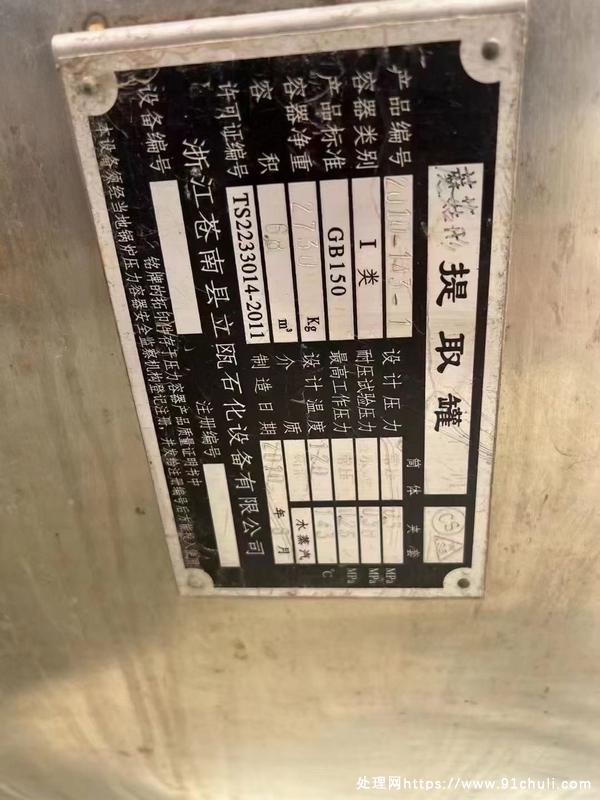 提取罐
产品编号 2010-143-1
容器类别 I 类
产品标准 GB150
容器净重 2730 Kg
容积 6 m³
许可证编号 TS2233014-2011
筒体 夹套
设计压力 MPa
耐压试验压力 MPa
最高工作压力 MPa
设计温度 120 ℃
介质 水蒸汽
制造日期 2010 年 月
浙江苍南县立瓯石化设备有限公司
设备编号 注册编号
铭牌的拓印件存于压力容器产品质量证明书中
本设备须经当地锅炉压力容器安全监察机构登记注册，并发给注册编号后方能投入使用
CS
处理网https://www.91chuli.com/